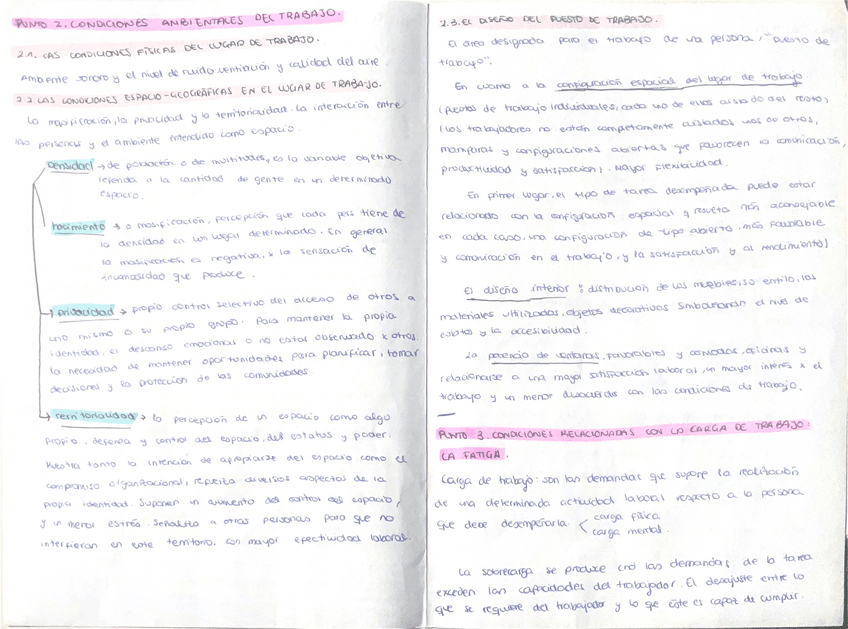 PUNTO 2. CONDICIONES AMBIENTALES DEL TRABAJO.
2.1. LAS CONDICIONES FÍSICAS DEL LUGAR DE TRABAJO.
Ambiente sonoro y el nivel de ruido ventilación y calidad del aire
2.2 LAS CONDICIONES ESPACIO-GEOGRÁFICAS EN EL LUGAR DE TRABAJO.
La masificación, la privacidad y la territorialidad. La interacción entre
las personas y el ambiente entendido como espacio.
Densidad → de población o de multitudes, es la variable objetiva
referida a la cantidad de gente en un determinado
espacio.
hacimiento → o masificación, percepción que cada pers tiene de
la densidad en un lugar determinado. En general
la masificación es negativa, x la sensación de
incomodidad que produce.
privacidad → propio control selectivo del acceso de otros a
uno mismo o su propio grupo. Para mantener la propia
identidad, el descanso emocional o no estar observado x otros.
la necesidad de mantener oportunidades para planificar, tomar
decisiones y la protección de las comunidades
territorialidad → la percepción de un espacio como algo
propio, defensa y control del espacio, del estatus y poder.
Muestra tanto la intención de apropiarse del espacio como el
compromiso organizacional, diversos aspectos de la
propia identidad. Suponen un aumento del control del espacio,
y un menor estrés. Señaliza a otras personas para que no
interfieran en este territorio. Con mayor efectividad laboral.
2.3. EL DISEÑO DEL PUESTO DE TRABAJO.
El área designada para el trabajo de una persona, "puesto de
trabajo".
En cuanto a la configuración espacial del lugar de trabajo
(puestos de trabajo individuales, cada uno de ellos aislado del resto)
(los trabajadores no están completamente aislados unos de otros,
mamparas y configuraciones abiertas que favorecen la comunicación,
productividad y satisfacción). Mayor flexibilidad.
En primer lugar, el tipo de tarea desempeñada puede estar
relacionado con la configuración espacial y resulta más aconsejable
en cada caso, una configuración de tipo abierto, más favorable
y comunicación en el trabajo, y la satisfacción y al rendimiento)
El diseño interior: distribución de los muebles, su estilo, los
materiales utilizados, objetos decorativos simbolizando el nivel de
estatus y la accesibilidad.
La de ventanas, favorables y cómodas, oficinas y
relacionarse a una mayor satisfacción laboral, un mayor interés x el
trabajo y un menor con las condiciones de trabajo.
PUNTO 3. CONDICIONES RELACIONADAS CON LA CARGA DE TRABAJO:
LA FATIGA.
Carga de trabajo: son las demandas que supone la realización
de una determinada actividad laboral respecto a la persona
que debe desempeñarla. < carga física
carga mental.
La sobrecarga se produce cnd las demandas de la tarea
exceden las capacidades del trabajador. El desajuste entre lo
que se requiere del trabajador y lo que éste es capaz de cumplir.